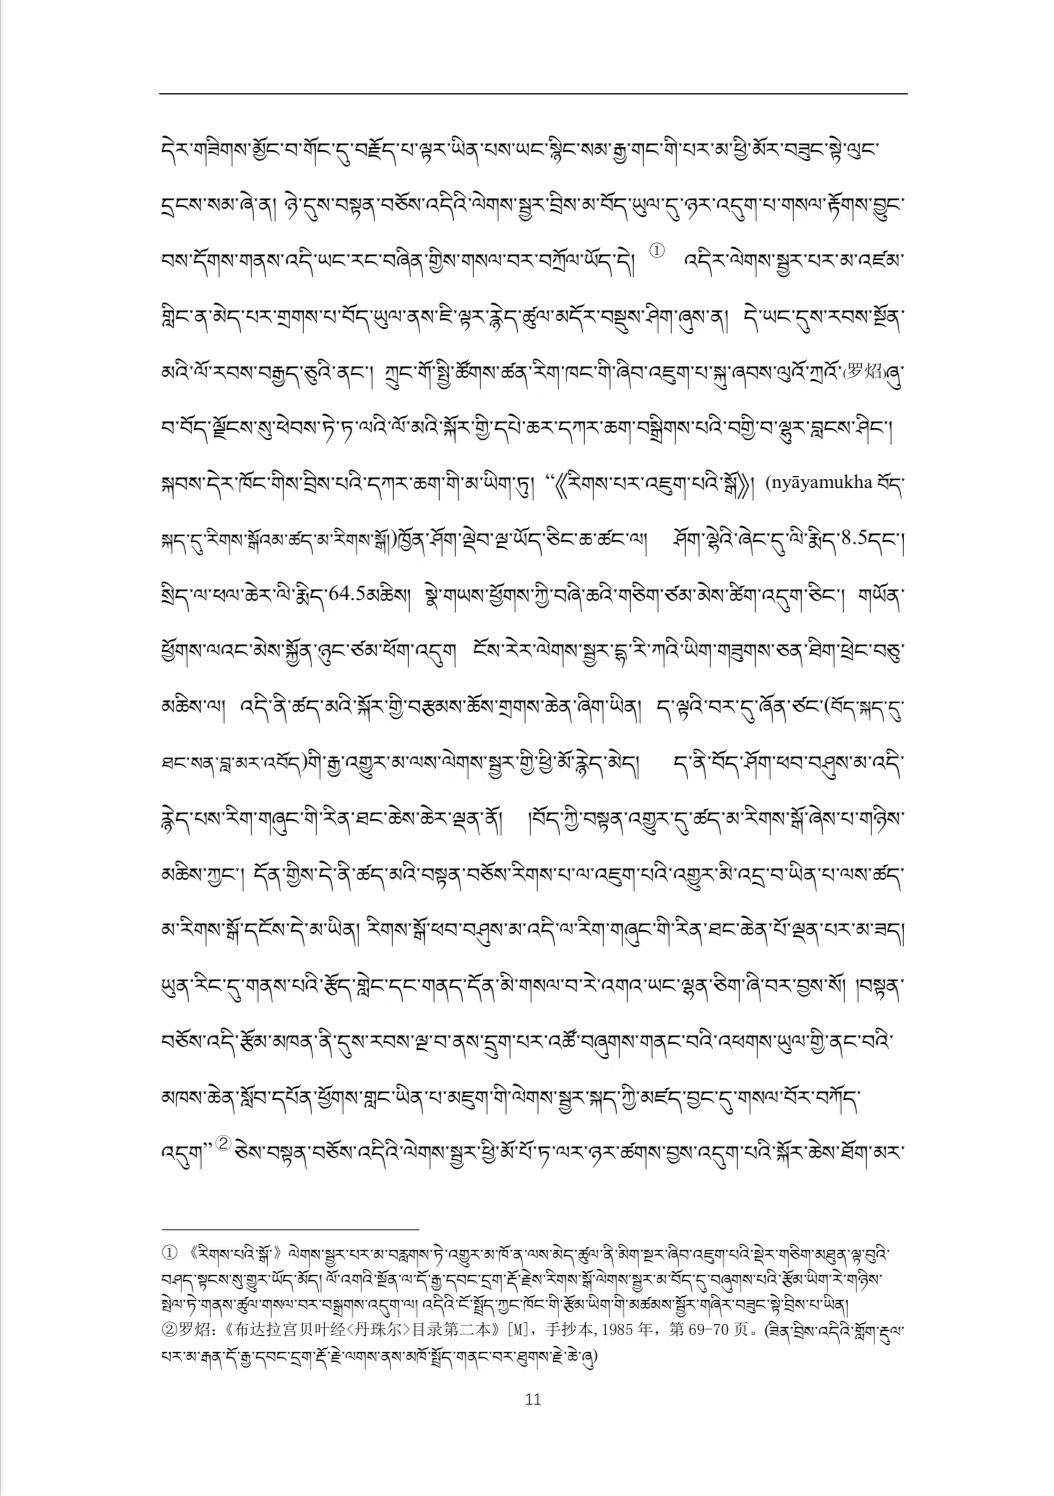 དེར་གཟིགས་མྱོང་བ་གོང་དུ་བརྗོད་པ་ལྟར་ཡིན་པས་ཡང་སྙིང་སམ་རྒྱ་གང་གི་པར་མ་ཕྱི་མོར་བཟུང་སྟེ་ལུང་
དྲངས་སམ་ཞེ་ན། ཉེ་དུས་བསྟན་བཅོས་འདིའི་ལེགས་སྦྱར་བྲིས་མ་བོད་ཡུལ་དུ་ཉར་འདུག་པ་གསལ་རྟོགས་བྱུང་
བས་དོགས་གནས་འདི་ཡང་རང་བཞིན་གྱིས་གསལ་བར་བཀྲོལ་ཡོད་དེ། ① འདིར་ལེགས་སྦྱར་པར་མ་འཛམ་
གླིང་ན་མེད་པར་གྲགས་པ་བོད་ཡུལ་ནས་ཇི་ལྟར་རྙེད་ཚུལ་མདོར་བསྡུས་ཤིག་ཞུས་ན། དེ་ཡང་དུས་རབས་སྔོན་
མའི་ལོ་རབས་བརྒྱད་ཅུའི་ནང་། ཀྲུང་གོ་སྤྱི་ཚོགས་ཚན་རིག་ཁང་གི་ཞིབ་འཇུག་པ་སྐུ་ཞབས་ལུའོ་ཀྲའོ་(罗炤)ཞུ་
བ་བོད་ལྗོངས་སུ་ཕེབས་ཏེ་ཏ་ལའི་ལོ་མའི་སྐོར་གྱི་དཔེ་ཆར་དཀར་ཆག་བསྒྲིགས་པའི་བགྱི་བ་ལྷུར་བླངས་ཤིང་།
སྐབས་དེར་ཁོང་གིས་བྲིས་པའི་དཀར་ཆག་གི་མ་ཡིག་ཏུ། “《རིགས་པར་འཇུག་པའི་སྒོ》། (nyāyamukha བོད་
སྐད་དུ་རིགས་སྒོའམ་ཚད་མ་རིགས་སྒོ།)ཁྱོན་ཤོག་ལྡེབ་ལྔ་ཡོད་ཅིང་ཆ་ཚང་ལ། ཤོག་ལྷེའི་ཞེང་དུ་ལི་རྨིད་8.5དང་།
སྲིད་ལ་ཕལ་ཆེར་ལི་རྨིད་64.5མཆིས། སྣེ་གཡས་ཕྱོགས་ཀྱི་བཞི་ཆའི་གཅིག་ཙམ་མེས་ཚིག་འདུག་ཅིང་། གཡོན་
ཕྱོགས་ལའང་མེས་སྐྱོན་ཉུང་ཙམ་ཕོག་འདུག ངོས་རེར་ལེགས་སྦྱར་དྷ་རི་ཀའི་ཡིག་གཟུགས་ཅན་ཐིག་ཕྲེང་བཅུ་
མཆིས་ལ། འདི་ནི་ཚད་མའི་སྐོར་གྱི་བརྩམས་ཆོས་གྲགས་ཆེན་ཞིག་ཡིན། ད་ལྟའི་བར་དུ་ཞོན་ཙང་(བོད་སྐད་དུ་
ཐང་སན་བླ་མར་འབོད)གི་རྒྱ་འགྱུར་མ་ལས་ལེགས་སྦྱར་གྱི་ཕྱི་མོ་རྙེད་མེད། ད་ནི་བོད་ཤོག་ཕབ་བཤུས་མ་འདི་
རྙེད་པས་རིག་གཞུང་གི་རིན་ཐང་ཆེས་ཆེར་ལྡན་ནོ། །བོད་ཀྱི་བསྟན་འགྱུར་དུ་ཚད་མ་རིགས་སྒོ་ཞེས་པ་གཉིས་
མཆིས་ཀྱང་། དོན་གྱིས་དེ་ནི་ཚད་མའི་བསྟན་བཅོས་རིགས་པ་ལ་འཇུག་པའི་འགྱུར་མི་འདྲ་བ་ཡིན་པ་ལས་ཚད་
མ་རིགས་སྒོ་དངོས་དེ་མ་ཡིན། རིགས་སྒོ་ཕབ་བཤུས་མ་འདི་ལ་རིག་གཞུང་གི་རིན་ཐང་ཆེན་པོ་ལྡན་པར་མ་ཟད།
ཡུན་རིང་དུ་གནས་པའི་རྩོད་གླེང་དང་གནད་དོན་མི་གསལ་བ་རེ་འགའ་ཡང་ལྷན་ཅིག་ཞི་བར་བྱས་སོ། །བསྟན་
བཅོས་འདི་རྩོམ་མཁན་ནི་དུས་རབས་ལྔ་བ་ནས་དྲུག་པར་འཚོ་བཞུགས་གནང་བའི་འཕགས་ཡུལ་གྱི་ནང་བའི་
མཁས་ཆེན་སློབ་དཔོན་ཕྱོགས་གླང་ཡིན་པ་མཇུག་གི་ལེགས་སྦྱར་སྐད་ཀྱི་མཛད་བྱང་དུ་གསལ་བོར་བཀོད་
འདུག”② ཅེས་བསྟན་བཅོས་འདིའི་ལེགས་སྦྱར་ཕྱི་མོ་པོ་ཏ་ལར་ཉར་ཚགས་བྱས་འདུག་པའི་སྐོར་ཆེས་ཐོག་མར་
① 《རིགས་པའི་སྒོ་》 ལེགས་སྦྱར་པར་མ་བརླགས་ཏེ་འགྱུར་མ་ཁོ་ན་ལས་མེད་ཚུལ་ནི་མིག་སྔར་ཞིབ་འཇུག་པའི་སྡེར་གཅིག་མཐུན་ལྟ་བུའི་
བཤད་སྟངས་སུ་གྱུར་ཡོད་མོད། ལོ་འགའི་སྔོན་ལ་དོ་རྒྱ་དབང་དྲག་རྡོ་རྗེས་རིགས་སྒོ་ལེགས་སྦྱར་མ་བོད་དུ་བཞུགས་པའི་རྩོམ་ཡིག་རེ་གཉིས་
སྤེལ་ཏེ་གནས་ཚུལ་གསལ་བར་བསྒྲགས་འདུག་ལ། འདིའི་ངོ་སྤྲོད་ཀྱང་ཁོང་གི་རྩོམ་ཡིག་གི་མཚམས་སྦྱོར་གཞིར་བཟུང་སྟེ་བྲིས་པ་ཡིན།
②罗炤：《布达拉宫贝叶经<丹珠尔>目录第二本》[M]，手抄本,1985 年，第 69-70 页。(ཟིན་བྲིས་འདིའི་གློག་རྡུལ་
པར་མ་རྒན་དོ་རྒྱ་དབང་དྲག་རྡོ་རྗེ་ལགས་ནས་མཁོ་སྤྲོད་གནང་བར་ཐུགས་རྗེ་ཆེ་ཞུ)
11